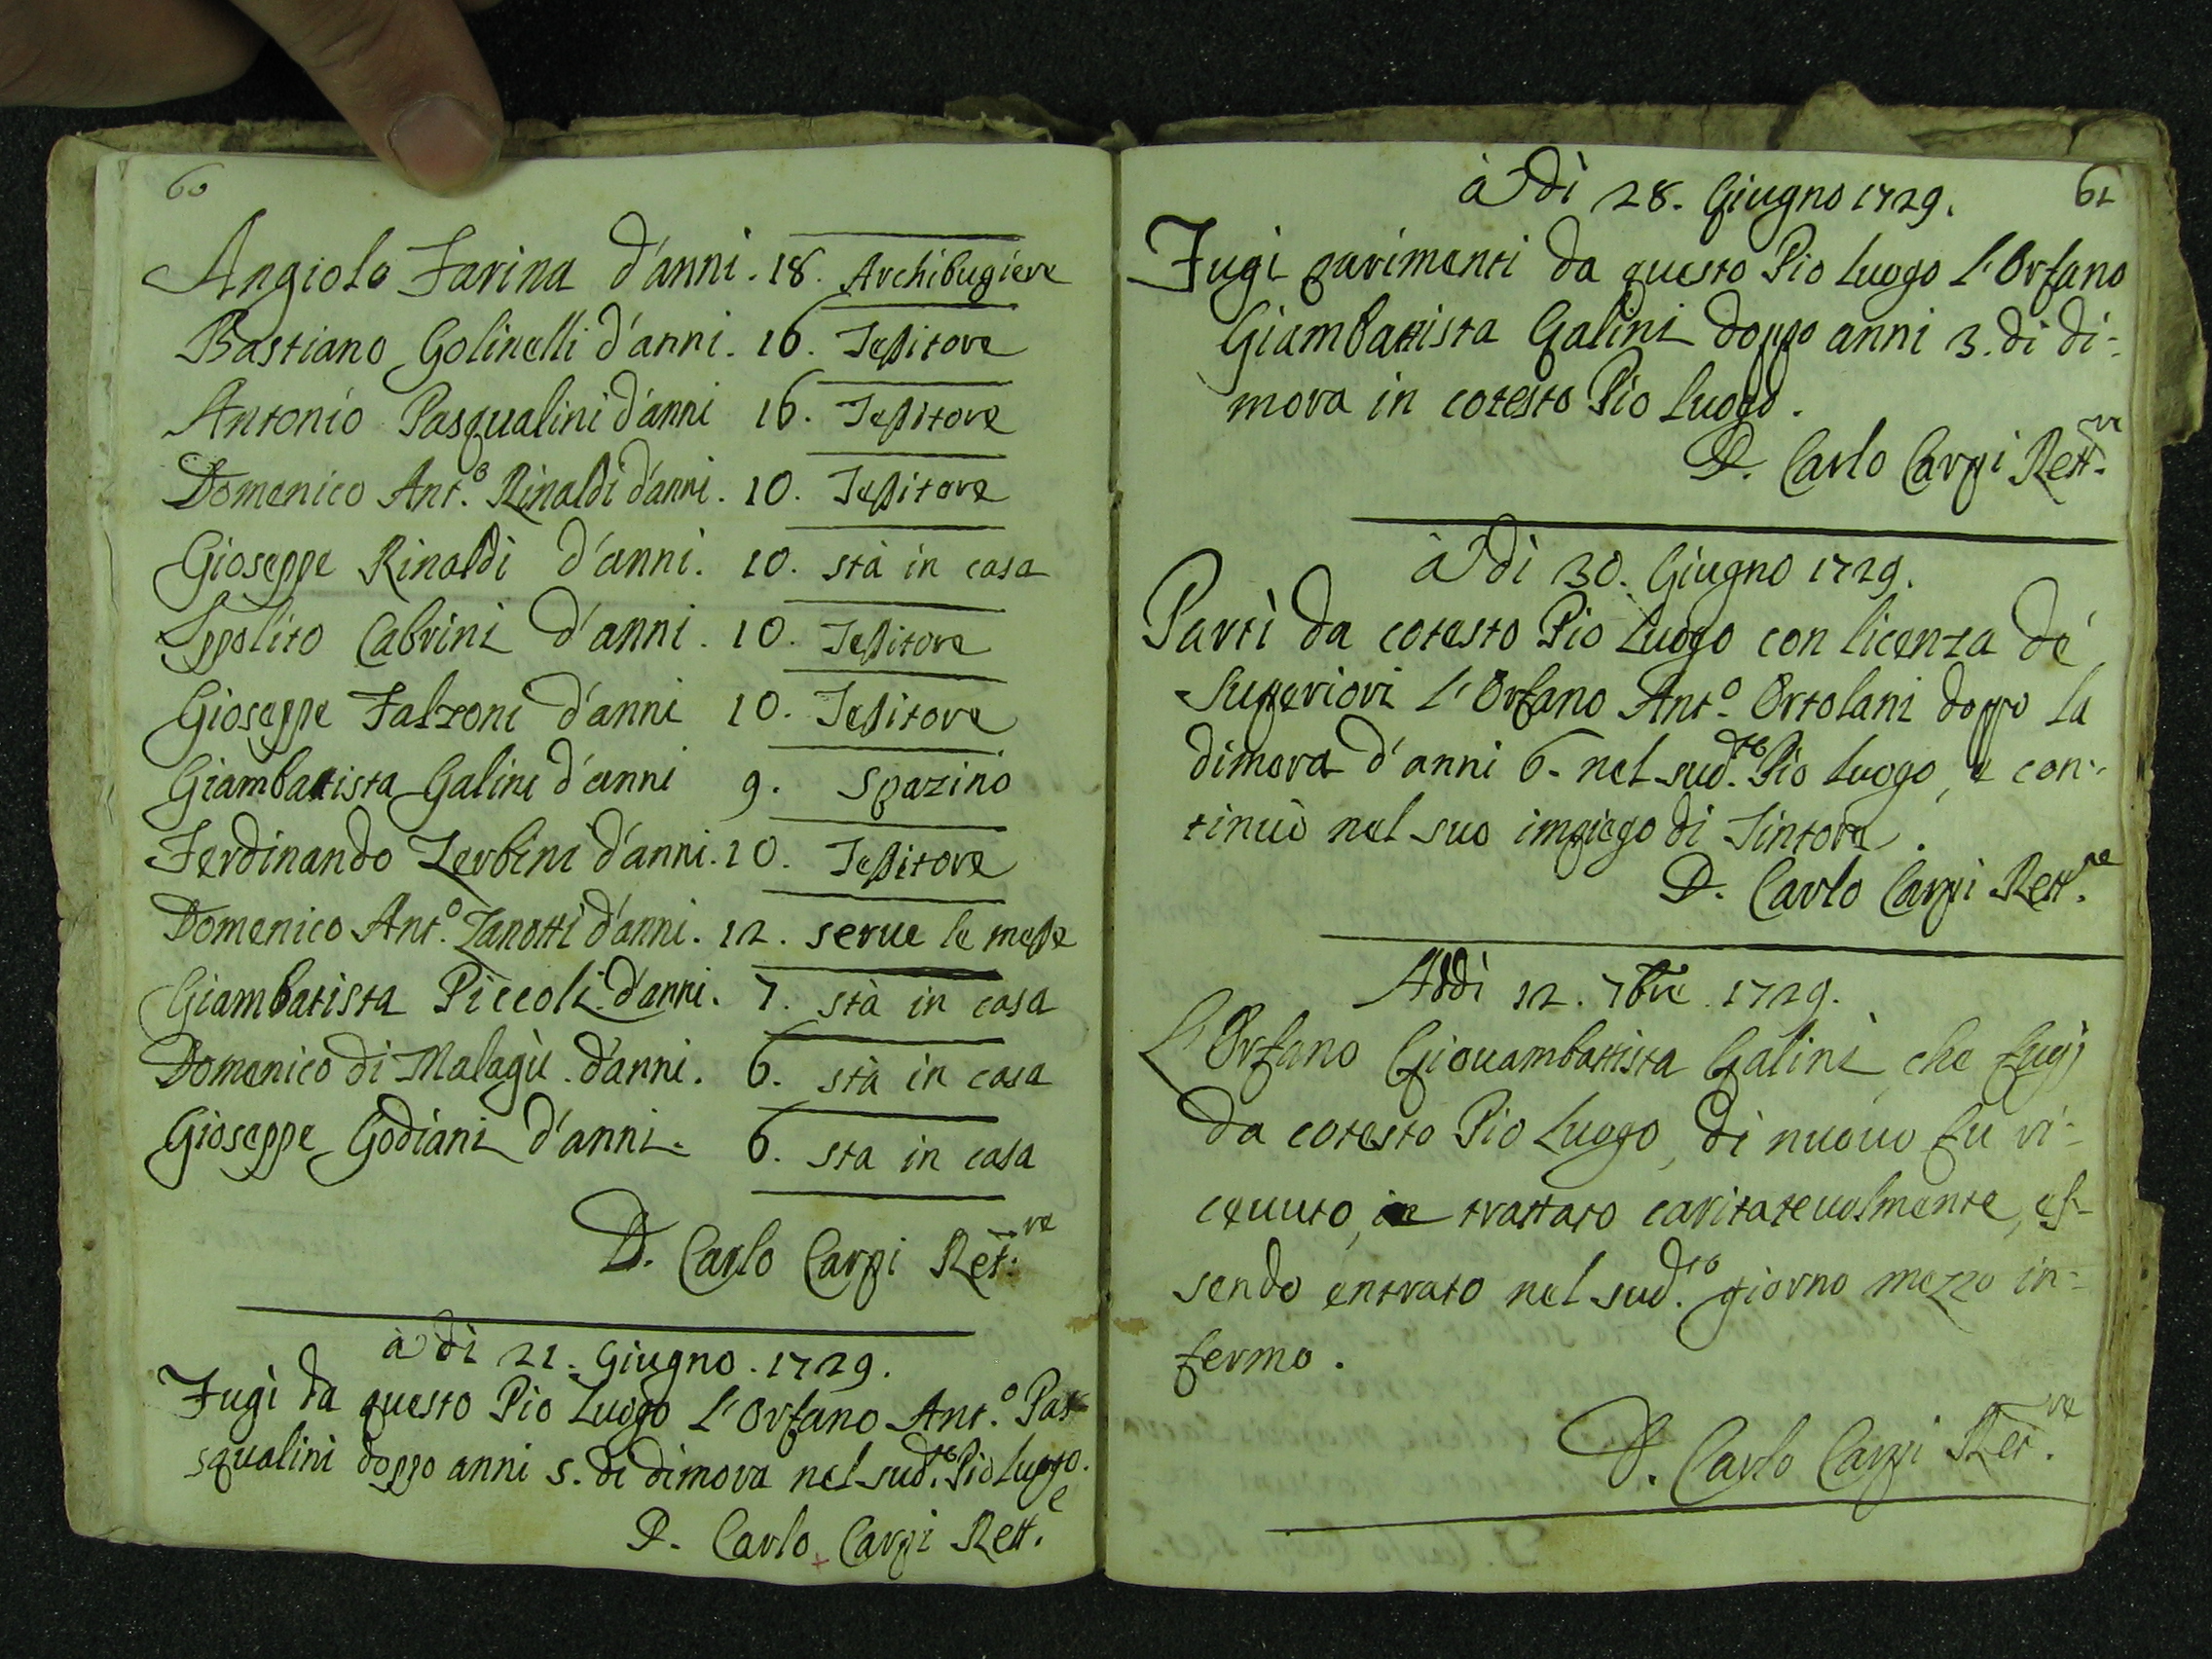 60
Angiolo Farina d'anni. 18. Archibugiere
Bastiano Golinelli d'anni. 16. Teßitore
Antonio Pasqualini d'anni 16. Teßitore
Domenico Ant.o Rinaldi d'anni. 10. Teßitore
Gioseppe Rinaldi d'anni. 10. stà in casa
Ippolito Cabrini d'anni. 10. Teßitore
Gioseppe Falzoni d'anni 10. Teßitore
Giambattista Galini d'anni 9. Spazino
Ferdinando Zerbini d'anni. 10. Teßitore
Domenico Ant.o Zanotti d'anni. 12. serue le meße
Giambatista Piccoli d'anni. 7. stà in casa
Domenico di Malagù. d'anni. 6. stà in casa
Gioseppe Godiani d'anni. 6. sta in casa
D. Carlo Carpi Ret.re
à dì 21. Giugno. 1729.
Fugì da questo Pio Luogo L'Orfano Ant.o Pas-
squalini doppo anni 5. di dimora nel sud.to Pio Luogo.
D. Carlo Carpi Rett.e
61
à dì 28. Giugno 1729.
Fugì parimenti da questo Pio Luogo L'Orfano
Giambattista Galini doppo anni 3. di di-
mora in cotesto Pio Luogo.
D. Carlo Carpi Rett.re
à dì 30. Giugno 1729.
Partì da cotesto Pio Luogo con licenza de'
Superiori L'Orfano Ant.o Ortolani doppo la
dimora d'anni 6. nel sud.to Pio Luogo, e con-
tinuò nel suo impiego di Tintore.
D. Carlo Carpi Rett.re
Addì 12. 7bre 1729.
L'Orfano Giouambattista Galini, che fugj
da cotesto Pio Luogo, di nuouo fu ri-
ceuuto, e trattato caritateuolmente, es-
sendo entrato nel sud.to giorno mezzo in-
fermo.
D. Carlo Carpi Ret.re